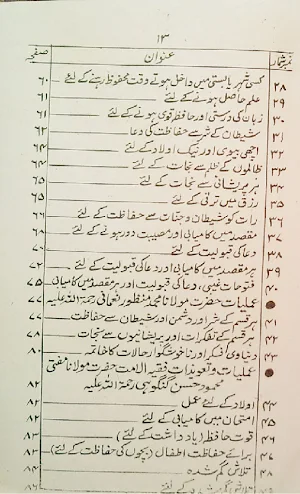 ۱۳
نمبر شمار عنوان صفحہ
۲۸ کسی شہر یا بستی میں داخل ہوتے وقت محفوظ رہنے کے لئے ۶۰
۲۹ علم حاصل ہونے کے لئے ۶۱
۳۰ زبان کی درستی اور حافظہ قوی ہونے کے لئے ۶۱
۳۱ شیطان کے شر سے حفاظت کی دعا ۶۲
۳۲ اچھی بیوی اور نیک اولاد کے لئے ۶۴
۳۳ ظالموں کے ظلم سے نجات کے لئے ۶۴
۳۴ ہر پریشانی سے نجات کے لئے ۶۵
۳۵ رزق میں ترقی کے لئے ۶۵
۳۶ رات کو شیطان و جنات سے حفاظت کے لئے ۶۶
۳۷ مقصد میں کامیابی اور مصیبت دور ہونے کے لئے ۶۸
۳۸ دعا کی قبولیت کے لئے ۷۰
۳۹ ہر مقصد میں کامیابی اور دعا کی قبولیت کے لئے ۷۲
۴۰ فتوحات غیبی، دعا کی قبولیت اور ہر مقصد میں کامیابی ۷۵
● عملیات حضرت مولانا محمد منظور نعمانی رحمۃ اللہ علیہ ۷۷
۴۱ ہر قسم کے شر اور دشمن اور شیطان سے حفاظت ۷۷
۴۲ ہر قسم کے تفکرات اور پریشانیوں سے نجات ۷۸
۴۳ دنیاوی فکر اور ناخوشگوار حالات کا خاتمہ ۸۰
● عملیات و تعویذات فقیہ الامت حضرت مولانا مفتی
محمود حسن گنگوہی رحمۃ اللہ علیہ ۸۲
۴۴ اولاد کے لئے عمل ۸۲
۴۵ امتحان میں کامیابی کے لئے ۸۲
۴۶ قوت حافظہ (یادداشت کے لئے) ۸۳
۴۷ برائے حفاظت اطفال (بچوں کی حفاظت کے لئے) ۸۳
۴۸ تلاش گم شدہ ۸۴